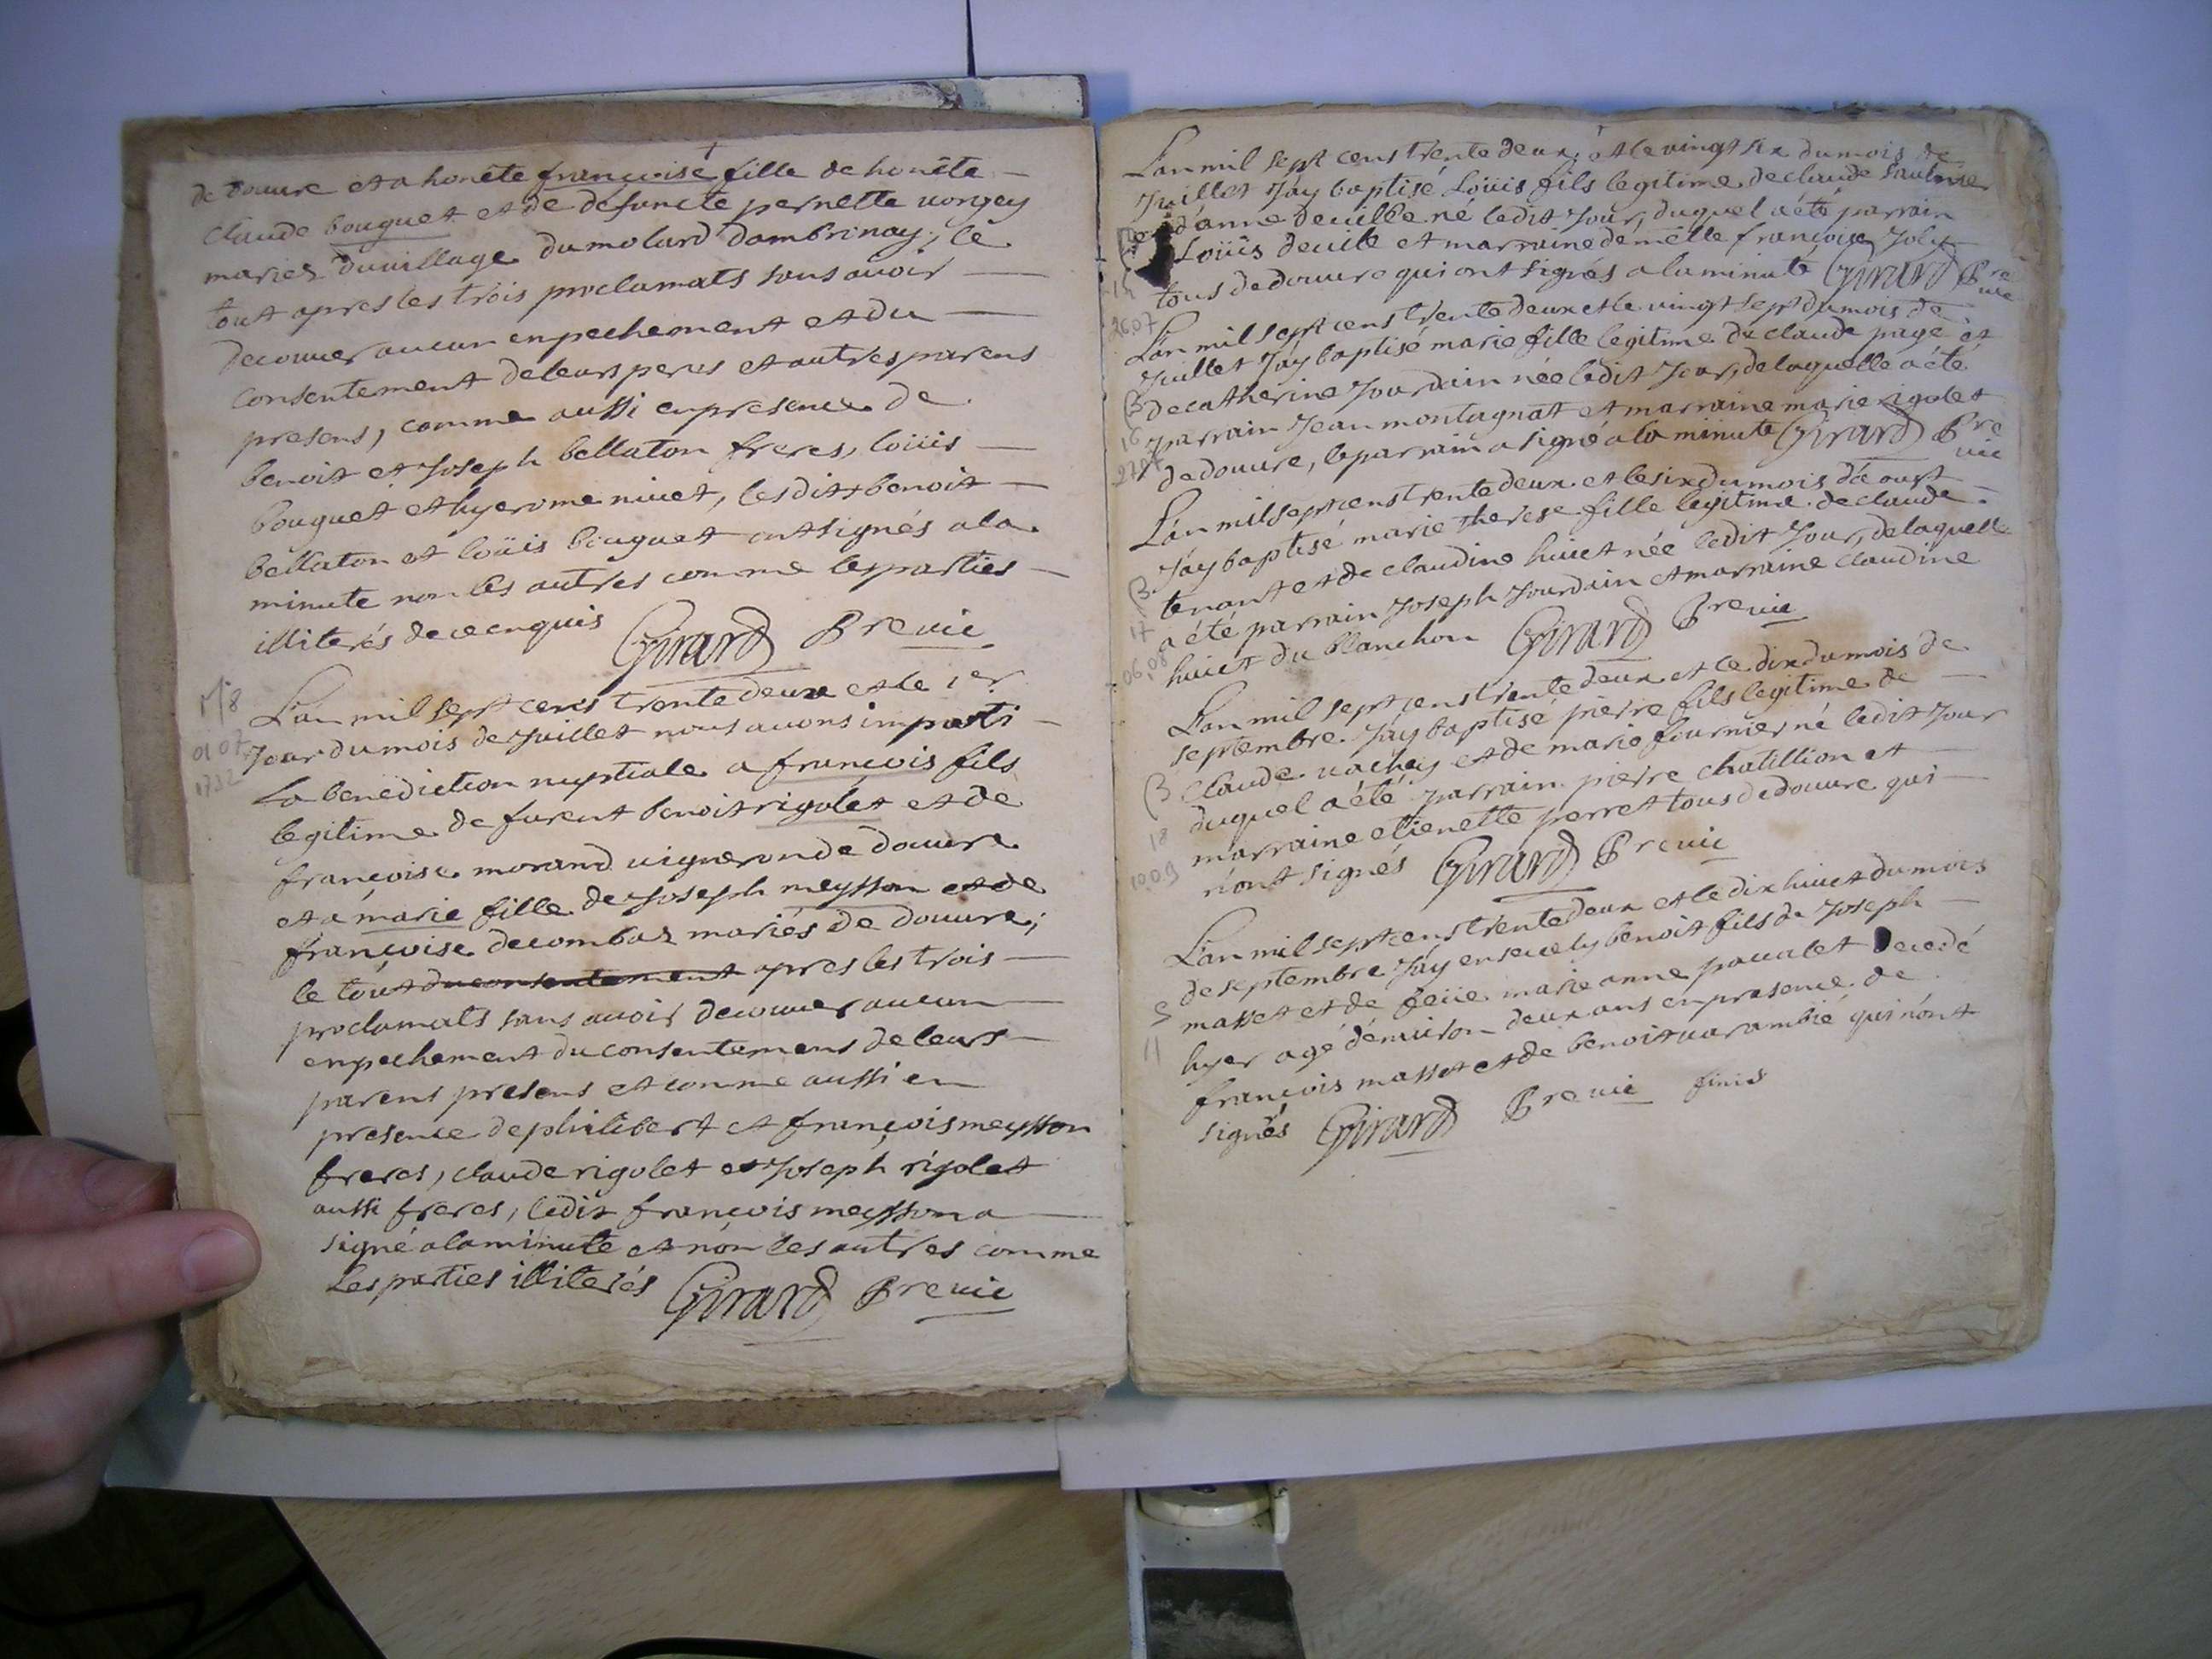 de douure et a honête françoise fille de honête
claude bouguet et de défuncte pernette uorgey
mariés du uillage du molard dambrinay; le
tout apres les trois proclamats sans auoir
decouuer aucun enpechement et du
consentement de leurs peres et autres parens
presens, comme aussi en presence de
benoit et Joseph bellaton freres, loüis
bouguet et hyerome niuet, lesdits benoit
bellaton et loüis bouguet ont signés a la
minute non les autres comme les parties
illiterés de ce enquis Girard Pre uic
M 8
01 07
1732
L'an mil sept cens trente deux et le 1er
Jour du mois de Juillet nous auons imparti
La benediction nuptiale a françois fils
legitime de furent benoit rigolet et de
françoise morand uigneron de douure
et a marie fille de Joseph meysson et de
françoise decombaz mariés de douure;
le tout du consentement apres les trois
proclamats sans auoir decouuer aucun
enpechement du consentemens de leurs
parens presens et comme aussi en
presence de philibert et françois meysson
freres, claude rigolet et Joseph rigolet
aussi freres, ledit françois meysson a
signé a la minute et non les autres comme
Les parties illiterés Girard Pre uic
L'an mil sept cens trente deux, et le uingt six du mois de
Juillet J'ay baptisé Loüis fils legitime de claude saulnier
d'anne deuille né ledit Jour, duquel a été parrain
Loüis deuille et marraine demelle françoise Joly
tous de douure qui ont signés a la minute Girard Pre
uic
26 07
L'an mil sept cens trente deux et le uingt sept du mois de
Juillet J'ay baptisé marie fille legitime de claude page et
B de catherine Jourdain née ledit Jour, de laquelle a été
16 parrain Jean montagnat et marraine marie rigolet
27 07 de douure, le parrain a signé a la minute Girard Pre
uic
L'an mil sept cens trente deux et le six du mois d'aoust
J'ay baptisé marie therese fille legitime de claude
B tenant et de claudine huict née ledit Jour, de laquelle
17 a été parrain Joseph Jourdain et marraine claudine
06.08 huict du blanchon Girard Pre uic
L'an mil sept cens trente deux et le dix du mois de
septembre J'ay baptisé pierre fils legitime de
B claude uachey et de marie fournier né ledit Jour
duquel a été parrain pierre chatillion et
18 marraine etienette perret tous de douure qui
10.09 n'ont signés Girard Pre uic
L'an mil sept cens trente deux et le dix huict du mois
de septembre J'ay enseuely benoit fils de Joseph
S masset et de feüe marie anne paualet Decedé
11 hyer agé d'enuiron deux ans en presence de
françois masset et de benoit uarambié qui n'ont
signés Girard Pre uic finis